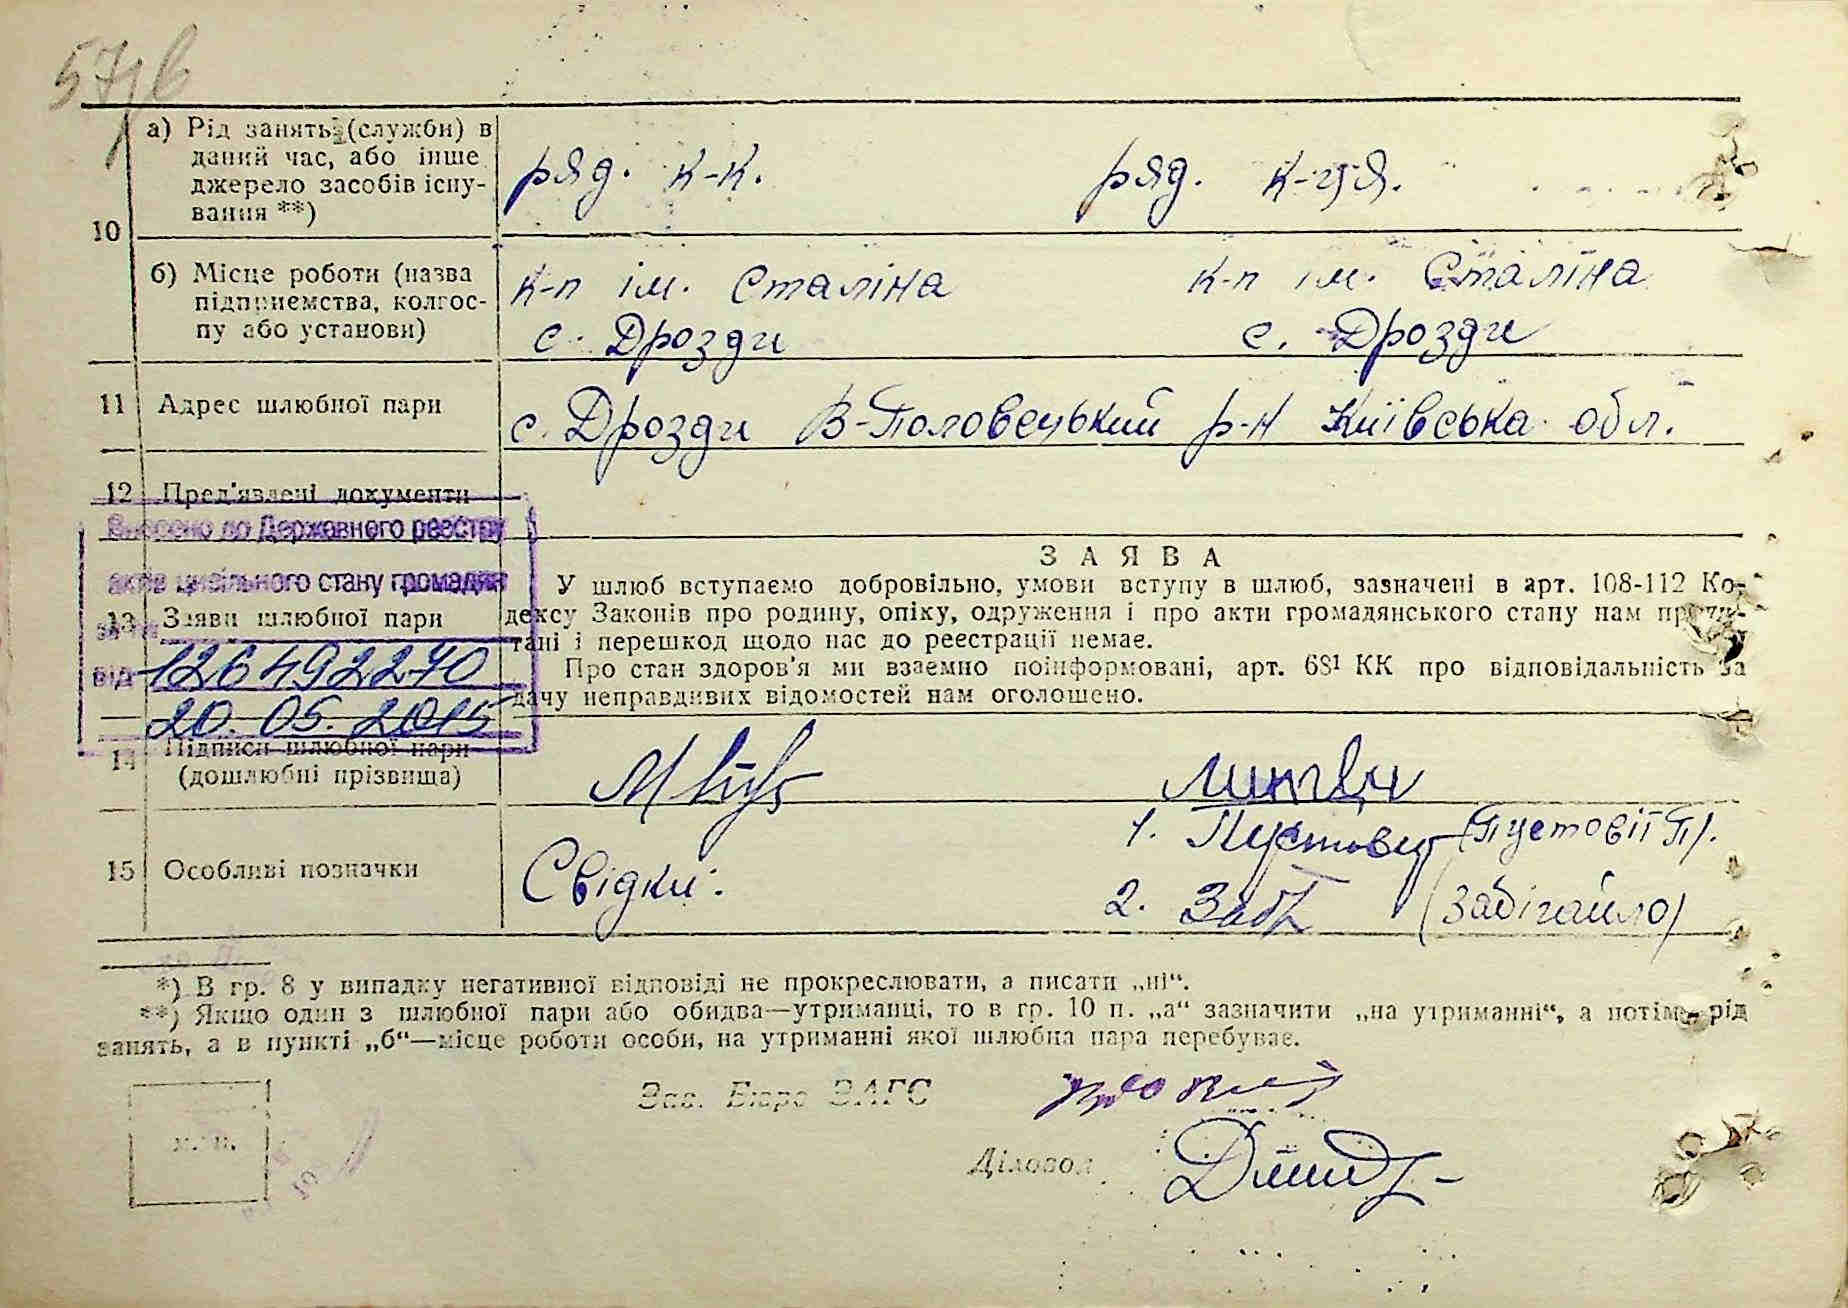 57/в
10
а) Рід занять (служби) в даний час, або інше джерело засобів існування **)
ряд. к-к.
ряд. к-ця.
б) Місце роботи (назва підприємства, колгоспу або установи)
к-п ім. Сталіна
с. Дрозди
к-п ім. Сталіна
с. Дрозди
11 Адрес шлюбної пари
с. Дрозди В-Половецький р-н Київська обл.
12 Пред'явлені документи
Внесено до Державного реєстру
актів цивільного стану громадян
за №
126492270
від
20. 05. 2015
13 Заяви шлюбної пари
ЗАЯВА
У шлюб вступаємо добровільно, умови вступу в шлюб, зазначені в арт. 108-112 Ко-
дексу Законів про родину, опіку, одруження і про акти громадянського стану нам прочи-
тані і перешкод щодо нас до реєстрації немає.
Про стан здоров'я ми взаємно поінформовані, арт. 68¹ КК про відповідальність за
дачу неправдивих відомостей нам оголошено.
14 Підписи шлюбної пари
(дошлюбні прізвища)
15 Особливі позначки
Свідки:
1. (Пустовіт П).
2. Заб (Забігайло)
*) В гр. 8 у випадку негативної відповіді не прокреслювати, а писати „ні“.
**) Якщо один з шлюбної пари або обидва—утриманці, то в гр. 10 п. „а“ зазначити „на утриманні“, а потім рід
занять, а в пункті „б“—місце роботи особи, на утриманні якої шлюбна пара перебуває.
Зав. Бюро ЗАГС
м. п.
Діловод